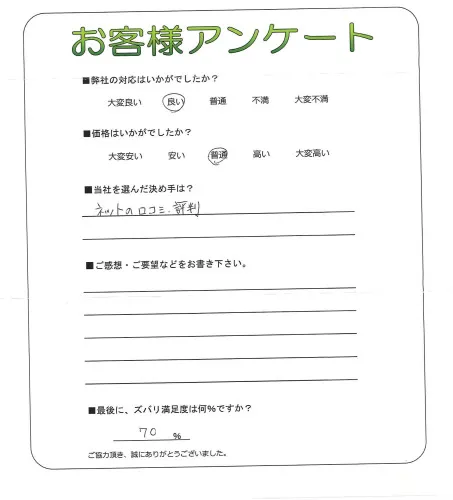 お客様アンケート
■弊社の対応はいかがでしたか?
大変良い 良い 普通 不満 大変不満
■価格はいかがでしたか?
大変安い 安い 普通 高い 大変高い
■当社を選んだ決め手は?
ネットの口コミ.評判
■ご感想・ご要望などをお書き下さい。
■最後に、ズバリ満足度は何%ですか?
70 %
ご協力頂き、誠にありがとうございました。